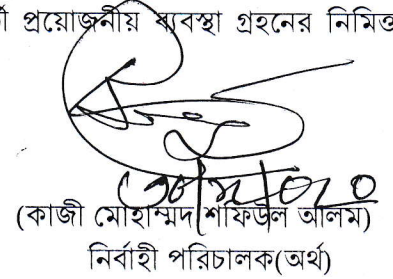 প্রয়োজনীয় ব্যবস্থা গ্রহনের নিমিত্ত
(কাজী মোহাম্মদ শফিউল আলম)
নির্বাহী পরিচালক(অর্থ)